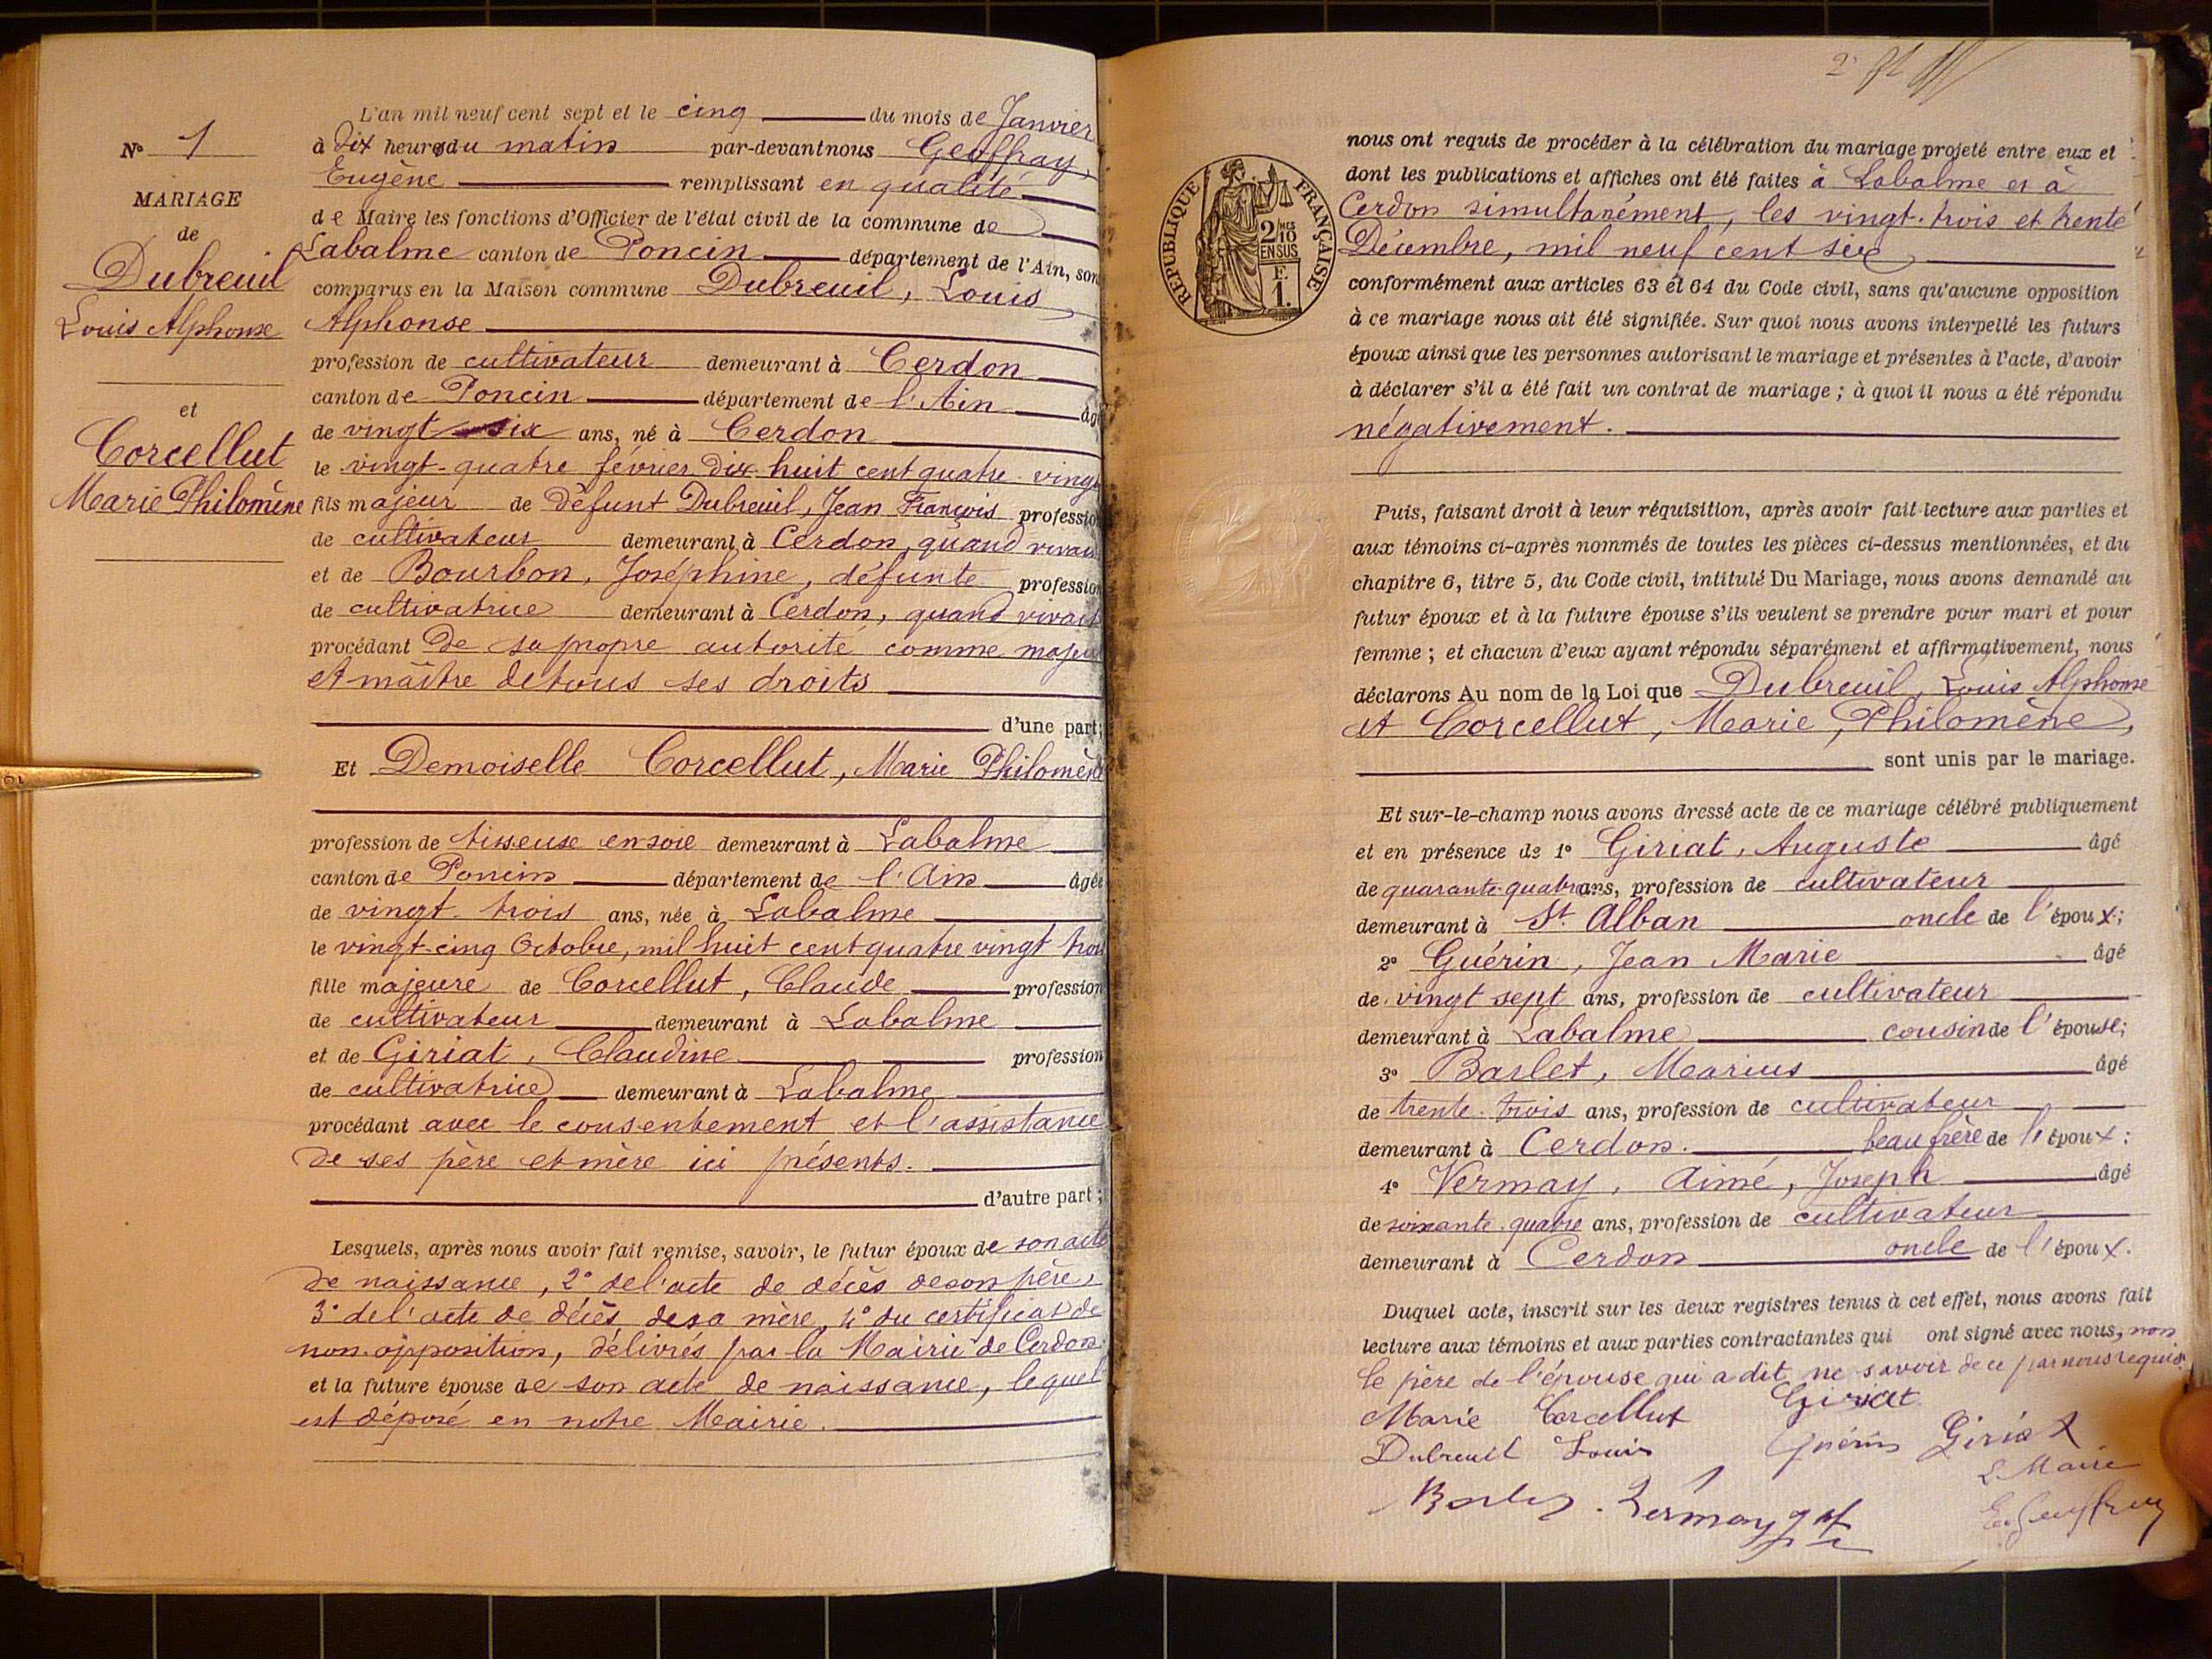 N° 1
MARIAGE
de
Dubreuil
Louis Alphonse
et
Corcellut
Marie Philomène
L'an mil neuf cent sept et le cinq du mois de Janvier
à dix heures du matin par-devant nous Geoffray,
Eugène remplissant en qualité
de Maire les fonctions d'Officier de l'état civil de la commune de
Labalme canton de Poncin département de l'Ain, son
comparus en la Maison commune Dubreuil, Louis
Alphonse
profession de cultivateur demeurant à Cerdon
canton de Poncin département de l'Ain âgé
de vingt six ans, né à Cerdon
le vingt-quatre février dix huit cent quatre vingt
fils majeur de défunt Dubreuil, Jean François profession
de cultivateur demeurant à Cerdon, quand vivait
et de Bourbon, Joséphine, défunte profession
de cultivatrice demeurant à Cerdon, quand vivait
procédant de sa propre autorité comme majeur
et maître de tous ses droits
d'une part;
Et Demoiselle Corcellut, Marie Philomène
profession de tisseuse en soie demeurant à Labalme
canton de Poncin département de l'Ain âgée
de vingt trois ans, née à Labalme
le vingt-cinq Octobre, mil huit cent quatre vingt trois
fille majeure de Corcellut, Claude profession
de cultivateur demeurant à Labalme
et de Giriat, Claudine profession
de cultivatrice demeurant à Labalme
procédant avec le consentement et l'assistance
de ses père et mère ici présents.
d'autre part;
Lesquels, après nous avoir fait remise, savoir, le futur époux de son acte
de naissance, 2° de l'acte de décès de son père,
3° de l'acte de décès de sa mère, 4° du certificat de
non-opposition, délivrés par la Mairie de Cerdon
et la future épouse de son acte de naissance, lequel
est déposé en notre Mairie.
nous ont requis de procéder à la célébration du mariage projeté entre eux et
dont les publications et affiches ont été faites à Labalme et à
Cerdon simultanément, les vingt-trois et trente
Décembre, mil neuf cent six
conformément aux articles 63 et 64 du Code civil, sans qu'aucune opposition
à ce mariage nous ait été signifiée. Sur quoi nous avons interpellé les futurs
époux ainsi que les personnes autorisant le mariage et présentes à l'acte, d'avoir
à déclarer s'il a été fait un contrat de mariage; à quoi il nous a été répondu
négativement.
REPUBLIQUE FRANÇAISE
2/10 MES
EN SUS
F.
1.
Puis, faisant droit à leur réquisition, après avoir fait lecture aux parties et
aux témoins ci-après nommés de toutes les pièces ci-dessus mentionnées, et du
chapitre 6, titre 5, du Code civil, intitulé Du Mariage, nous avons demandé au
futur époux et à la future épouse s'ils veulent se prendre pour mari et pour
femme; et chacun d'eux ayant répondu séparément et affirmativement, nous
déclarons Au nom de la Loi que Dubreuil, Louis Alphonse
et Corcellut, Marie, Philomène,
sont unis par le mariage.
Et sur-le-champ nous avons dressé acte de ce mariage célébré publiquement
et en présence de 1° Giriat, Auguste âgé
de quarante-quatre ans, profession de cultivateur
demeurant à St. Alban oncle de l'époux;
2° Guérin, Jean Marie âgé
de vingt sept ans, profession de cultivateur
demeurant à Labalme cousin de l'épouse;
3° Barlet, Marius âgé
de trente-trois ans, profession de cultivateur
demeurant à Cerdon. beau frère de l'époux;
4° Vermay, Aimé, Joseph âgé
de soixante-quatre ans, profession de cultivateur
demeurant à Cerdon oncle de l'époux.
Duquel acte, inscrit sur les deux registres tenus à cet effet, nous avons fait
lecture aux témoins et aux parties contractantes qui ont signé avec nous, non
le père de l'épouse qui a dit ne savoir de ce par nous requis
Marie Corcellut Giriat
Dubreuil Louis Guérin Giriat
Le Maire
Barlet. Vermay
E. Geoffray